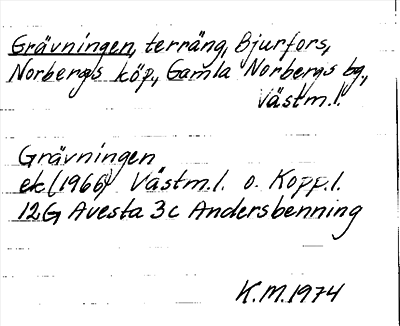 Grävningen, terräng, Bjurfors,
Norbergs köp., Gamla Norbergs bg.,
Västm.l.
Grävningen
ek (1966) Västm.l. o. Kopp.l.
12G Avesta 3c Andersbenning
K.M. 1974